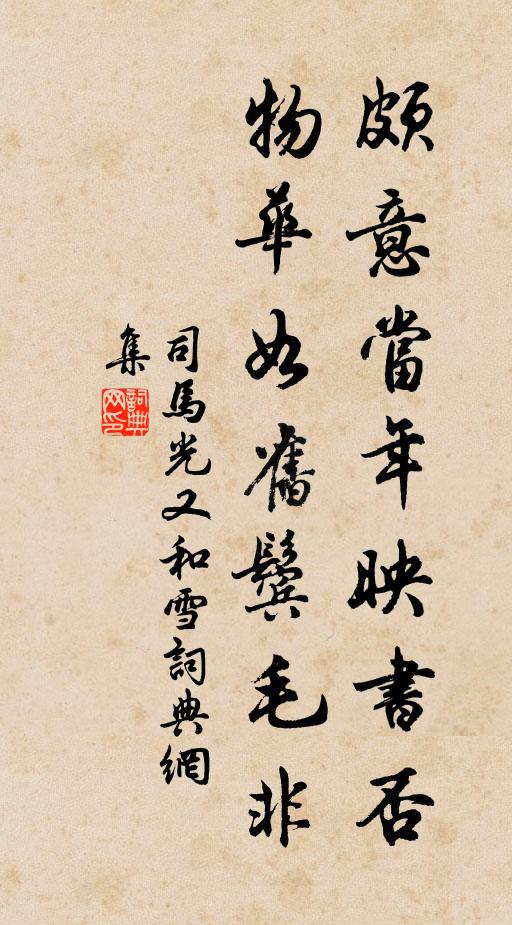 頗意當年映書否
物華如舊鬢毛非
司馬光又和雪詞典網
集
詞典
网印